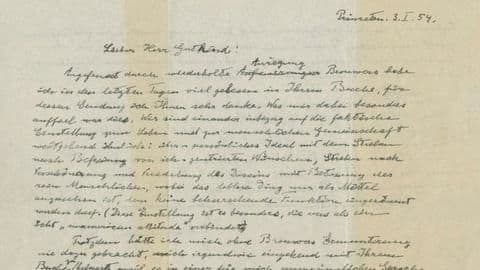 Princeton. 3. I. 54.
Lieber Herr Gutkind!
Anregung
Angefeuert durch wiederholte Brouwers habe
ich in den letzten Tagen viel gelesen in Ihrem Buche, für
dessen Sendung ich Ihnen sehr danke. Was mir dabei besonders
auffiel war dies. Wir sind einander inbezug auf die faktische
Einstellung zum Leben und zur menschlichen Gemeinschaft
weitgehend ähnlich: persönliches Ideal mit dem Streben
nach Befreiung von ich-zentrierten Wünschen, Streben nach
Verschönerung und Veredelung des Daseins mit Betonung des
rein Menschlichen, wobei das leblose Ding nur als Mittel
anzusehen ist, dem keine beherrschende Funktion eingeräumt
werden darf. (Diese Einstellung ist es besonders, die uns als ein
echt „unamerican attitude" verbindet)
Trotzdem hätte ich mich ohne Brouwers Ermunterung
nie dazu gebracht, mich irgendwie eingehend mit Ihrem
Buch zu weil es in einer für mich unzugänglichen Sprache